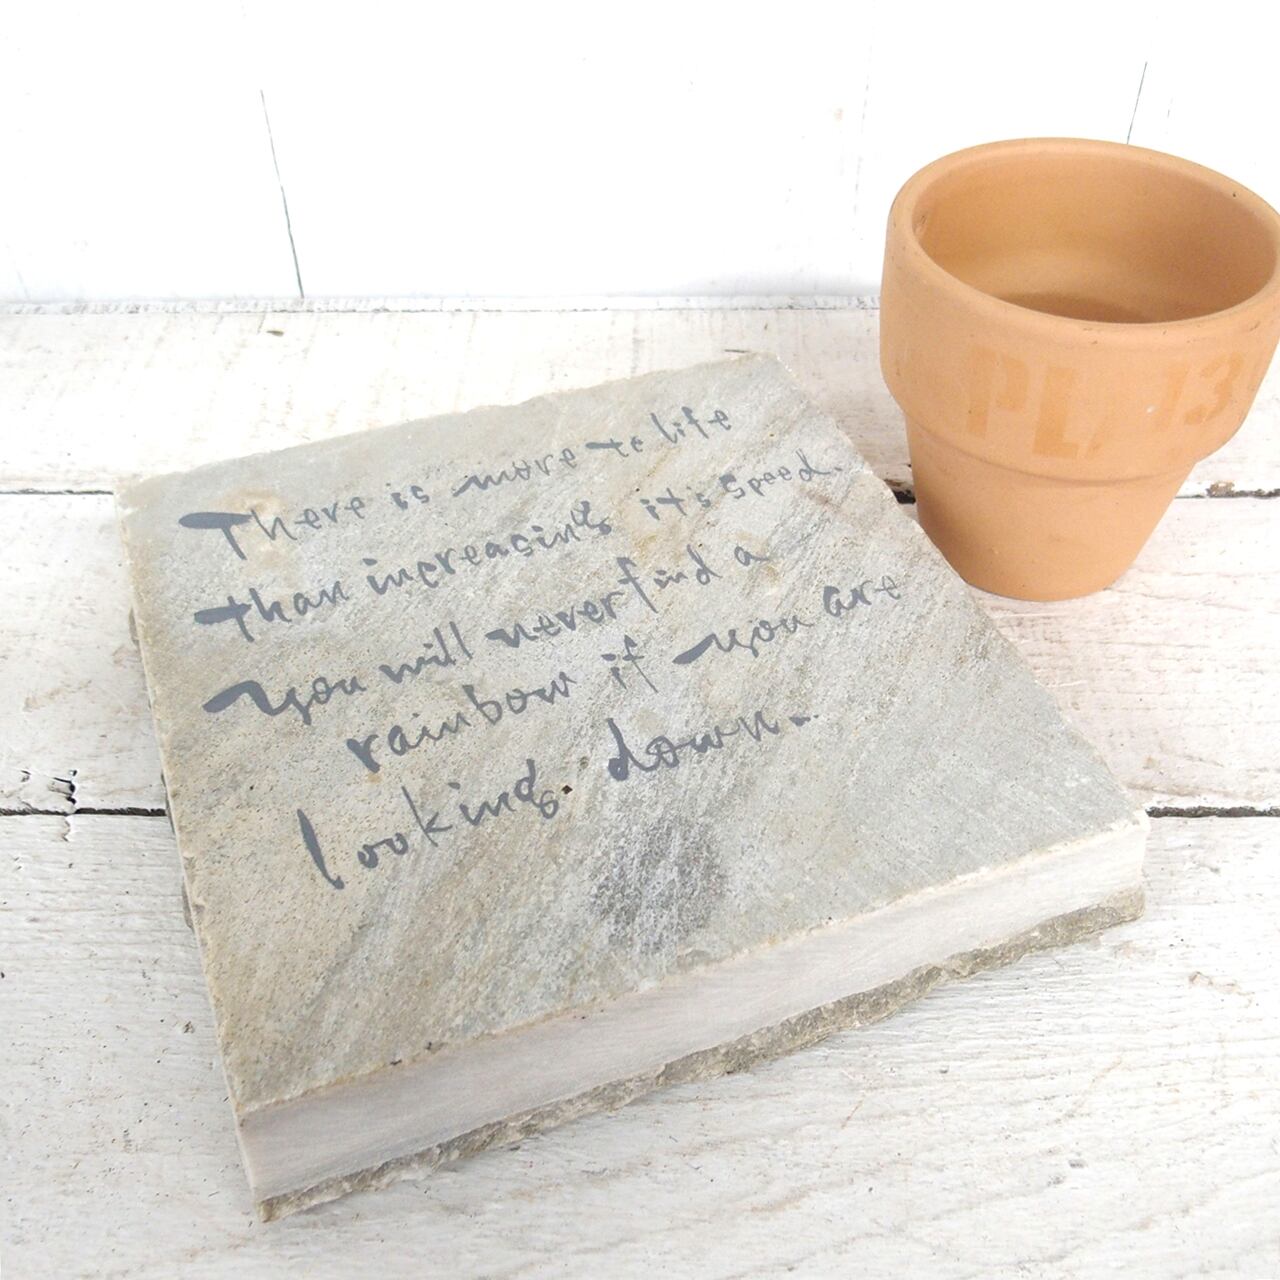 There is more to life
than increasing it's speed.
you will never find a
rainbow if you are
looking. down.
PL
13